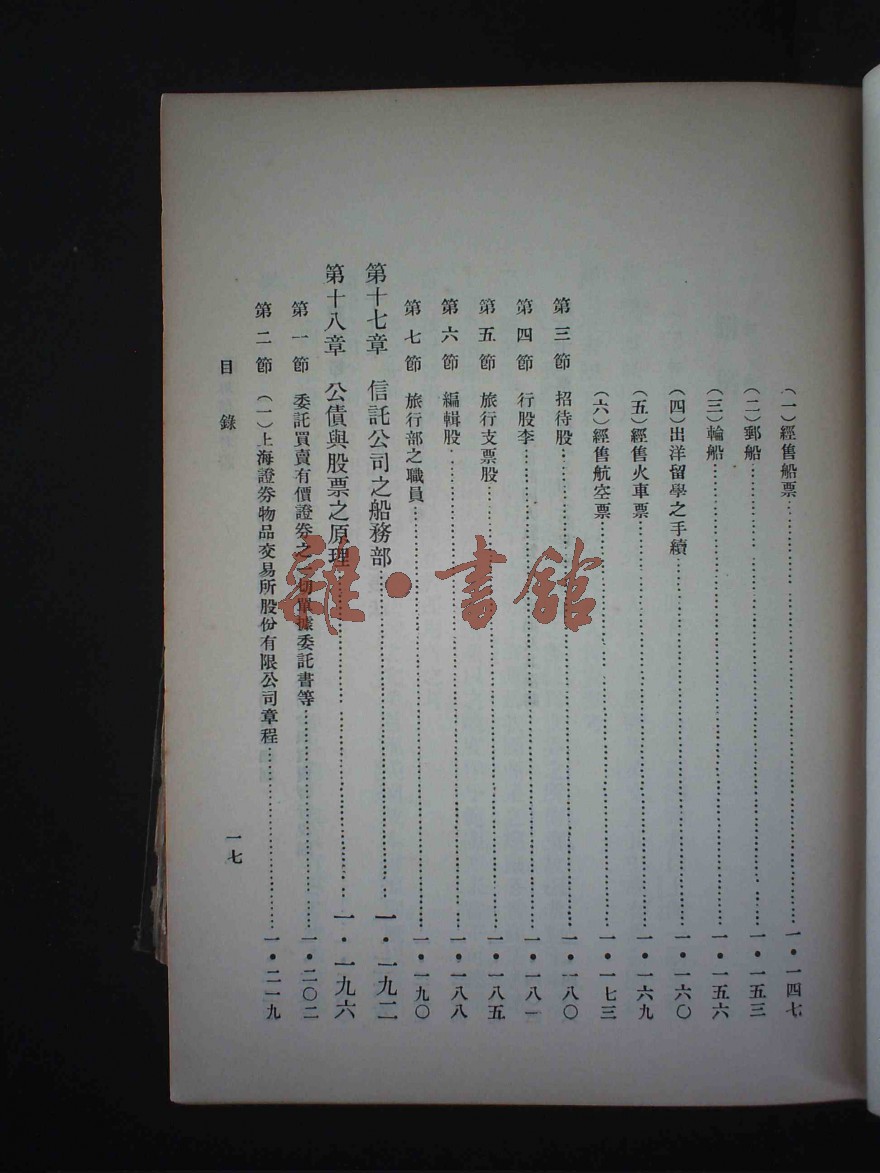 (一)經售船票……一・一四七
(二)郵船……一・一五三
(三)輪船……一・一五六
(四)出洋留學之手續……一・一六〇
(五)經售火車票……一・一六九
(六)經售航空票……一・一七三
第三節 招待股……一・一八〇
第四節 行股李……一・一八一
第五節 旅行支票股……一・一八五
第六節 編輯股……一・一八八
第七節 旅行部之職員……一・一九〇
第十七章 信託公司之船務部……一・一九二
第十八章 公債與股票之原理……一・一九六
第一節 委託買賣有價證券之一切單據委託書等……一・二〇二
第二節 (一)上海證券物品交易所股份有限公司章程……一・二一九
目錄 一七
雜・書館